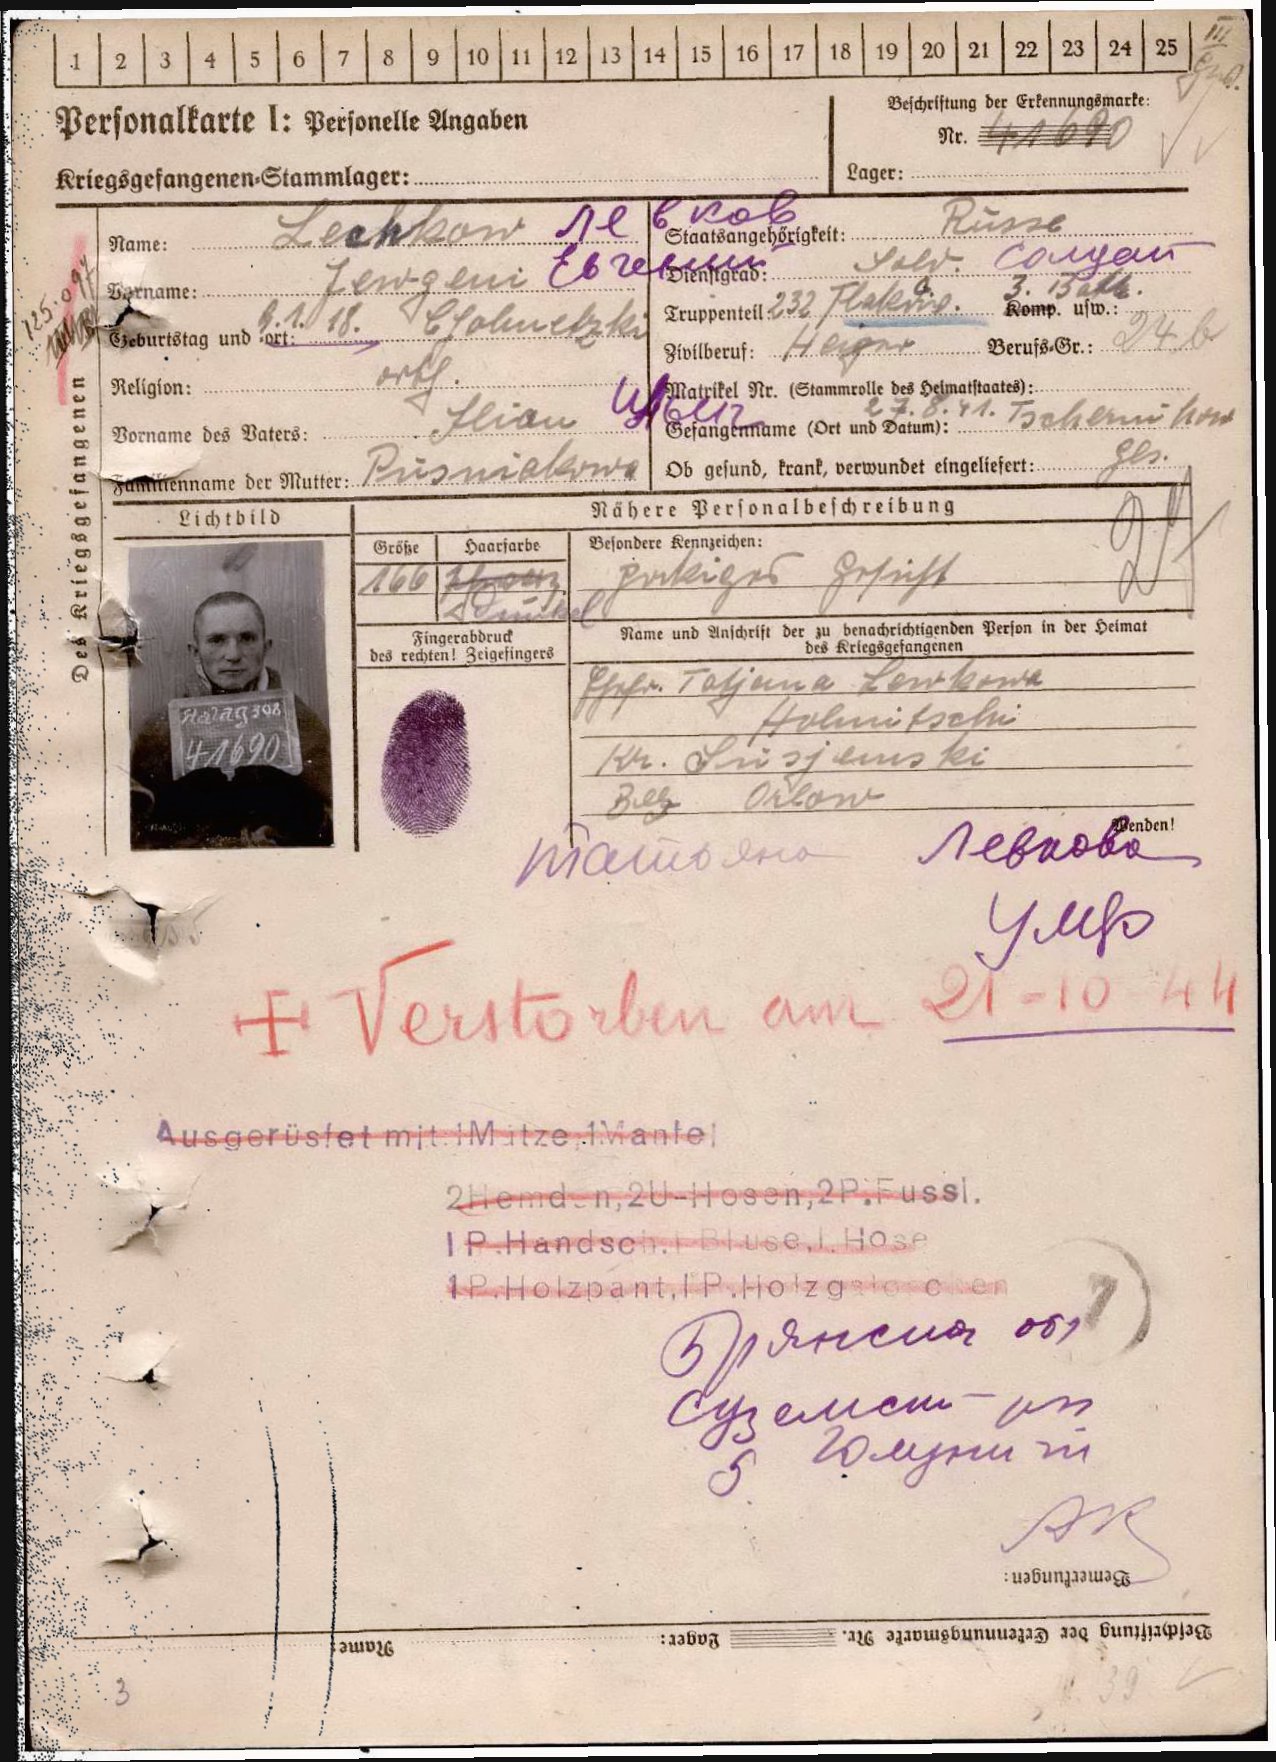 1 2 3 4 5 6 7 8 9 10 11 12 13 14 15 16 17 18 19 20 21 22 23 24 25
III
Personalkarte I: Personelle Angaben
Beschriftung der Erkennungsmarke:
Nr. 41690
Kriegsgefangenen-Stammlager:
Lager:
Des Kriegsgefangenen
Name: Lechkow Левков
Vorname: Jewgeni Евгений
Geburtstag und -ort: 9.1.18.
Religion: orth.
Vorname des Vaters: Ilian
Familienname der Mutter: Rusniakowa
Staatsangehörigkeit: Russe
Dienstgrad: Sold. Солдат
Truppenteil 232 Komp. usw.: 3. Batt.
Zivilberuf: Heizer Berufs-Gr.: 24b
Matrikel Nr. (Stammrolle des Heimatstaates):
Gefangenname (Ort und Datum): 27.8.41. Tschernikow
Ob gesund, krank, verwundet eingeliefert: ges.
Lichtbild
Nähere Personalbeschreibung
Größe Haarfarbe Besondere Kennzeichen:
166 Dunkel pockiges Gesicht
Stalag 308
41690
Fingerabdruck
des rechten! Zeigefingers
Name und Anschrift der zu benachrichtigenden Person in der Heimat
des Kriegsgefangenen
Ehefr. Tatjana Lewkowa
Holmitschi
Kr. Susjemski
Orlow
Wenden!
Татьяна Левкова
Умер
+ Verstorben am 21-10-44
Ausgerüstet mit: 1Mütze, 1Mantel
2Hemden, 2U-Hosen, 2P.Fussl.
1P.Handsch. 1 Bluse, 1. Hose
1P.Holzpant, 1P.Holzgaloschen
7
Брянская обл
Суземск-рн
Bemerkungen:
Beschriftung der Erkennungsmarke Nr. Lager: Name:
3
39